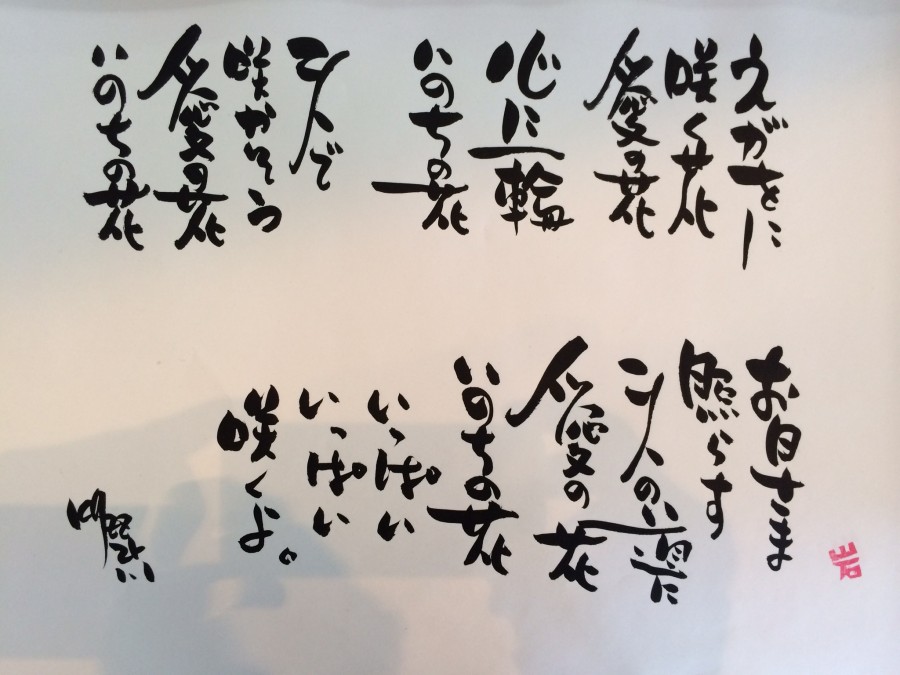 えがおに
咲く花
仁愛の花
心に一輪
いのちの花
二人で
咲かそう
仁愛の花
いのちの花
お日さま
照らす
二人の道に
仁愛の花
いのちの花
いっぱい
いっぱい
咲くよ。